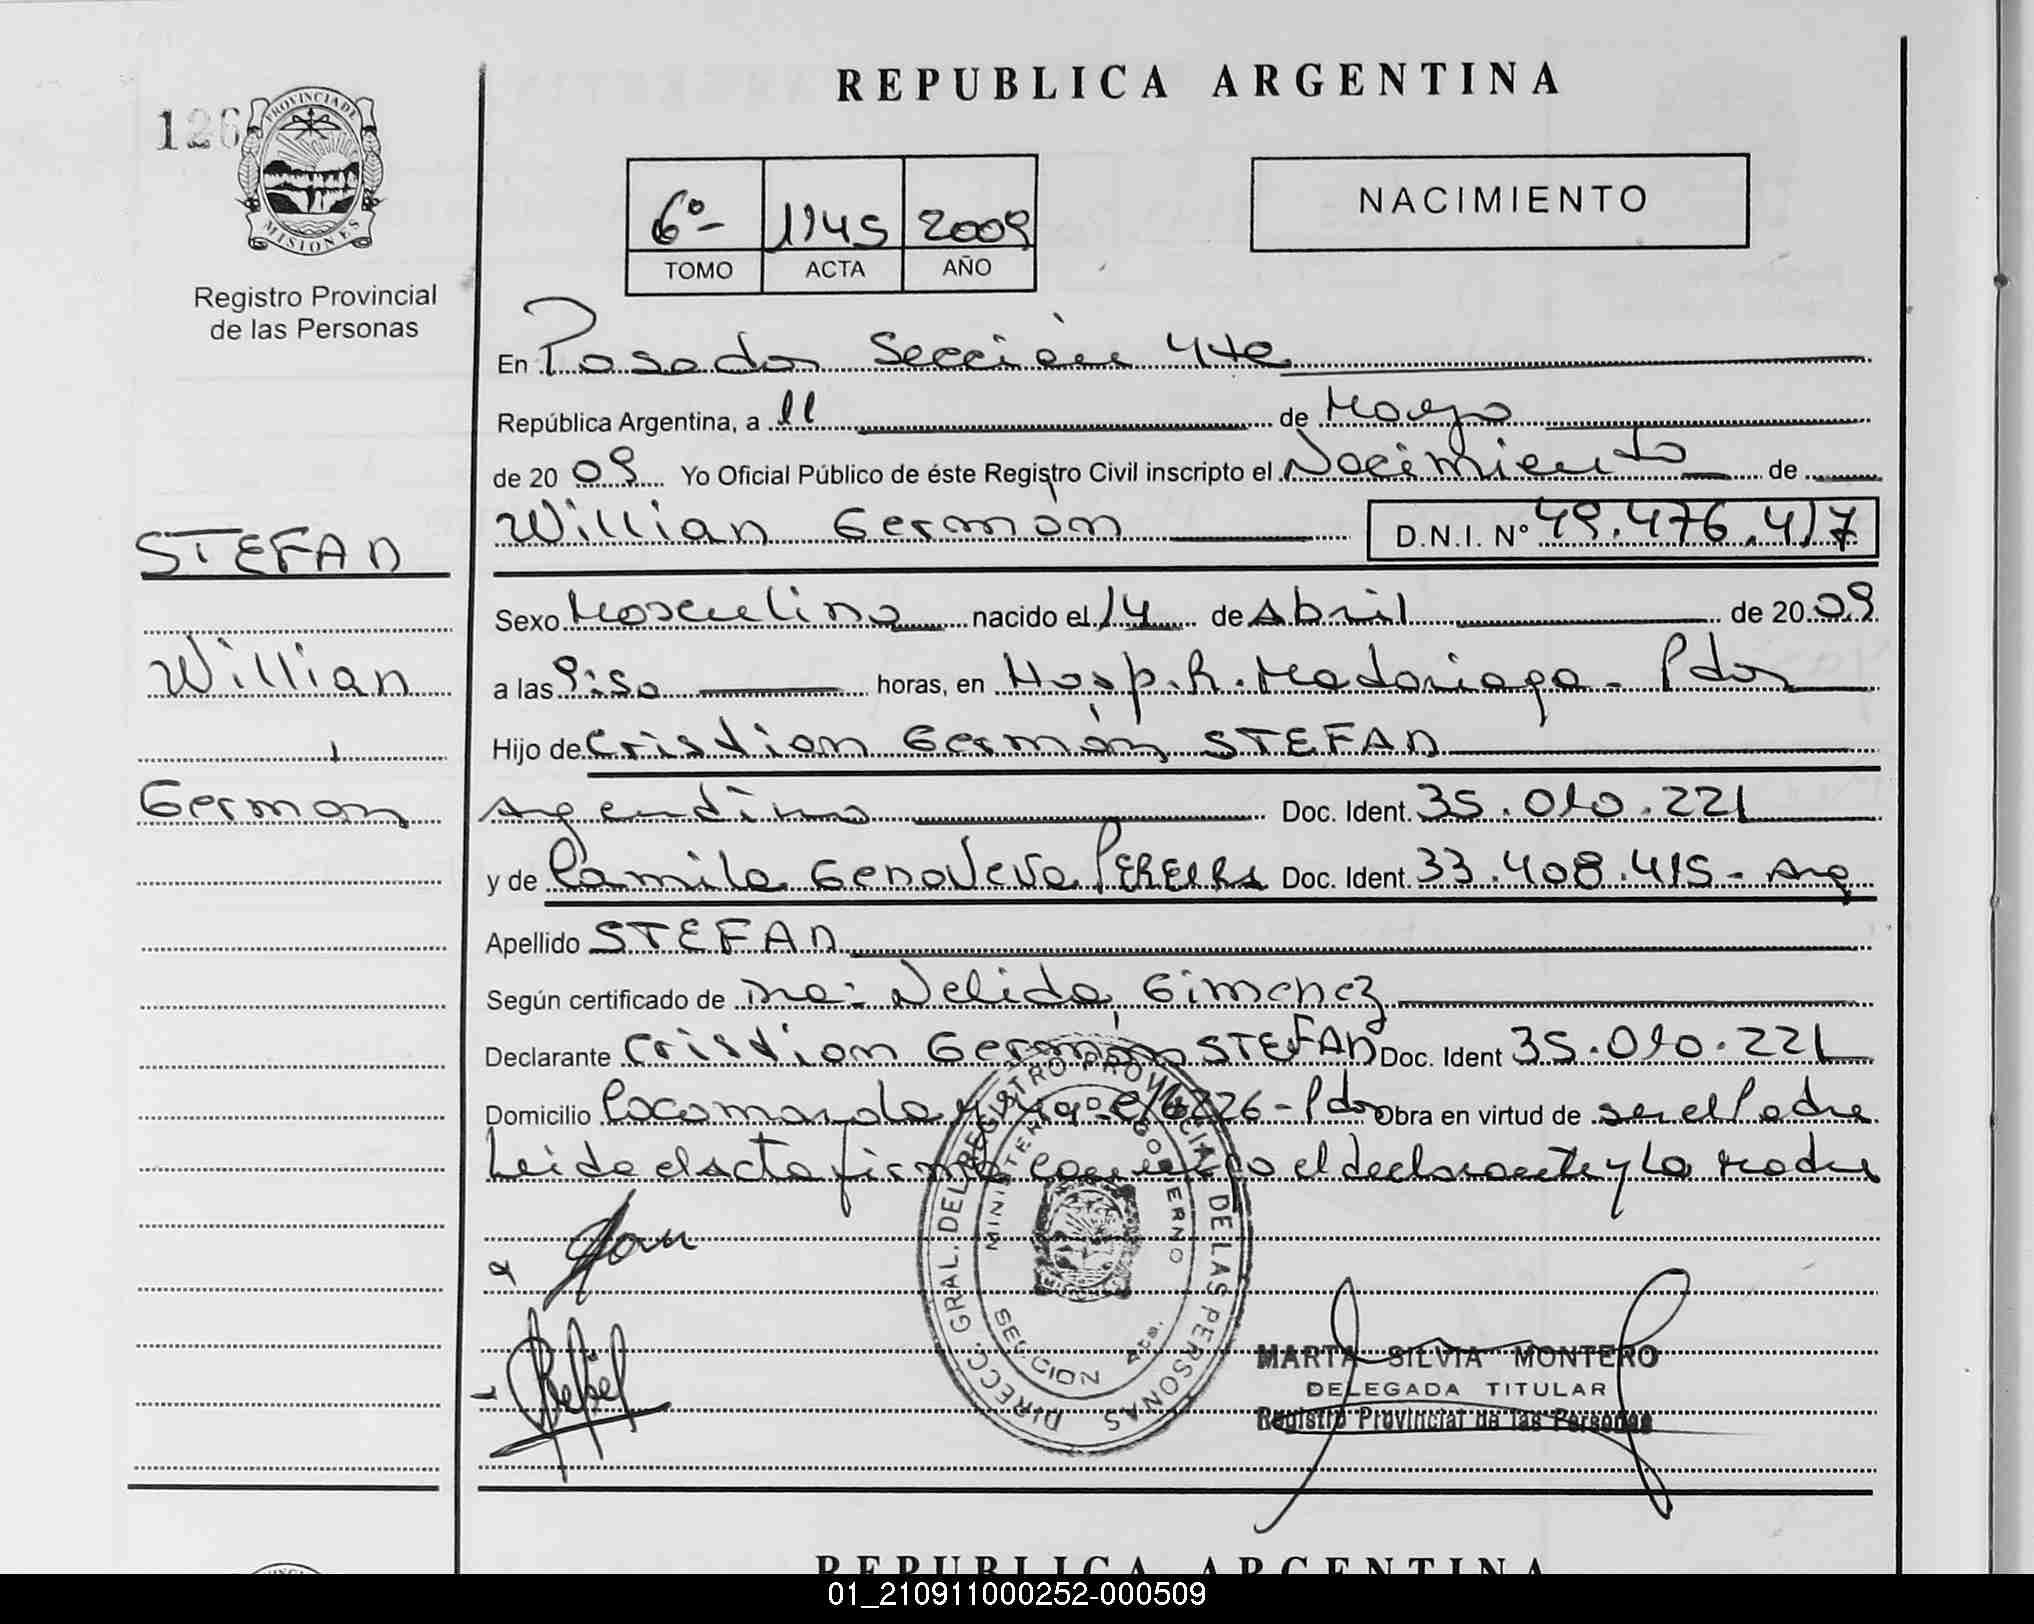 REPUBLICA ARGENTINA
126
PROVINCIA DE
MISIONES
Registro Provincial
de las Personas
6º- 1145 2009
TOMO ACTA AÑO
NACIMIENTO
En Posadas Sección 4ta
República Argentina, a 11 de Mayo
de 20 09 Yo Oficial Público de éste Registro Civil inscripto el Nacimiento de
Willian Germán D.N.I. Nº 49.476.417
STEFAN
Willian
Germán
Sexo Masculino nacido el 14 de Abril de 20 09
a las 9:50 horas, en Hosp. R. Madariaga - Pdas
Hijo de Cristian Germán STEFAN
Argentino Doc. Ident. 35.010.221
y de Camila Genoveva PEREIRA Doc. Ident. 33.408.415 - Arg
Apellido STEFAN
Según certificado de Nelida Gimenez
Declarante Cristian Germán STEFAN Doc. Ident 35.010.221
Domicilio Pdas Obra en virtud de ser el Padre
Leida el Acta firma conmigo el declarante y la Madre
DIRECC. GRAL. DEL REGISTRO PROVINCIAL DE LAS PERSONAS
MINISTERIO GOBIERNO
SECCION 4ta.
MARTA SILVIA MONTERO
DELEGADA TITULAR
Registro Provincial de las Personas
REPUBLICA ARGENTINA
01_210911000252-000509